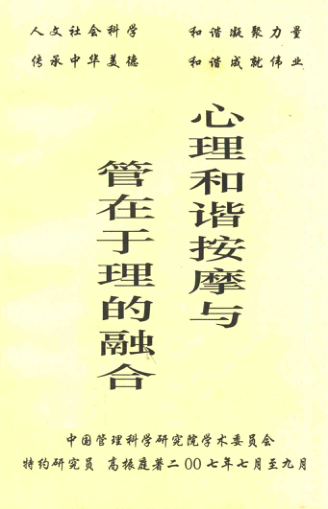 人文社会科学 和谐凝聚力量
传承中华美德 和谐成就伟业
心理和谐按摩与
管在于理的融合
中国管理科学研究院学术委员会
特约研究员 高振庭著二00七年七月至九月